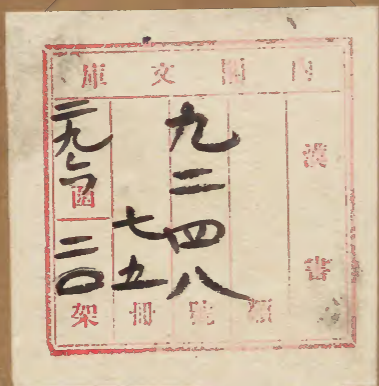 內閣文庫
漢書
九二四八號
七五冊
二九六函
二〇架